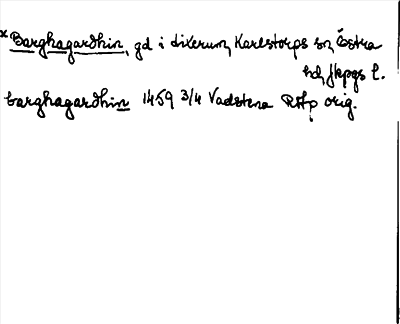 *Barghagardhin, gd i dixerum Karlstorps sn, Östra
hd, Jkpgs l.
barghagardhin 1459 3/4 Vadstena RAp orig.